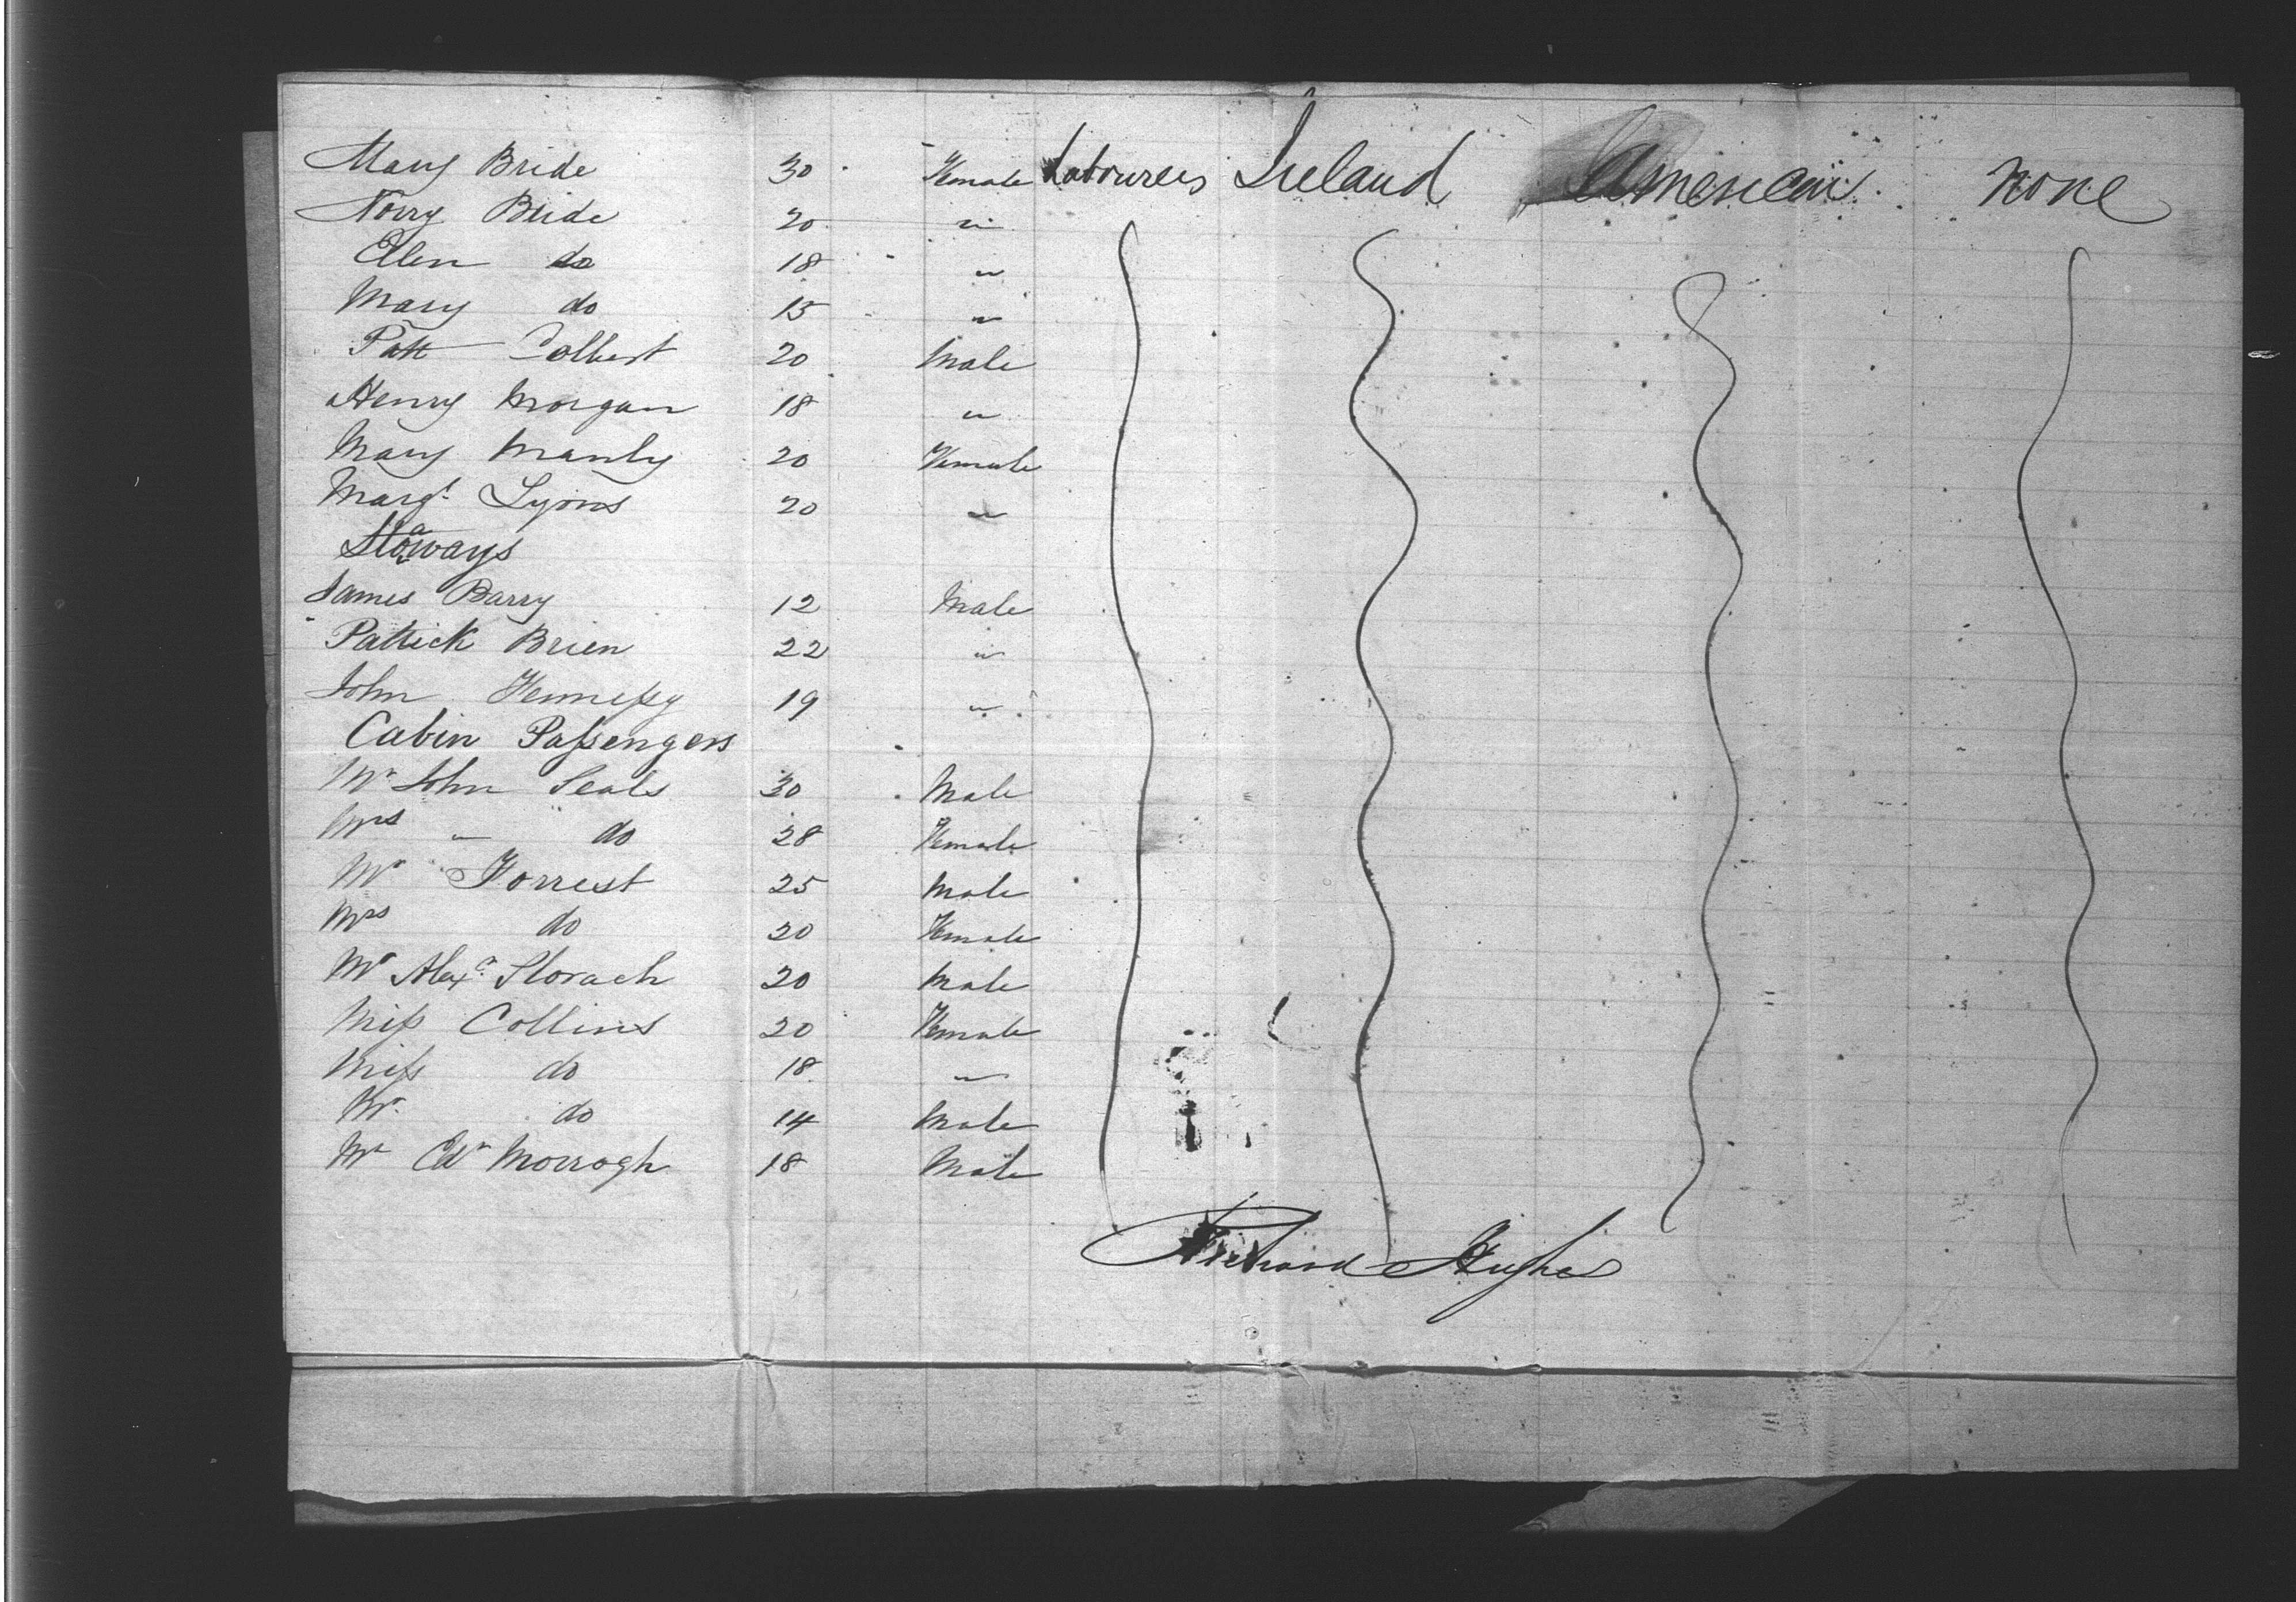 Mary Bride 30 Female Labourers Ireland American none
Norry Bride 20 "
Ellen do 18 "
Mary do 15 "
Patt Colbert 20 Male
Henry Morgan 18 "
Mary Manly 20 Female
Margt. Lyons 20 "
Stoaways
James Barry 12 Male
Patrick Brien 22 "
John Hennessy 19 "
Cabin Passengers
Mr John Seals 30 Male
Mrs " do 28 Female
Mr Forrest 25 Male
Mrs do 20 Female
Mr Alexr. Storach 20 Male
Miss Collins 20 Female
Miss do 18 "
Mr. do 14 Male
Mr Edr Morrogh 18 Male
Richard Hughes